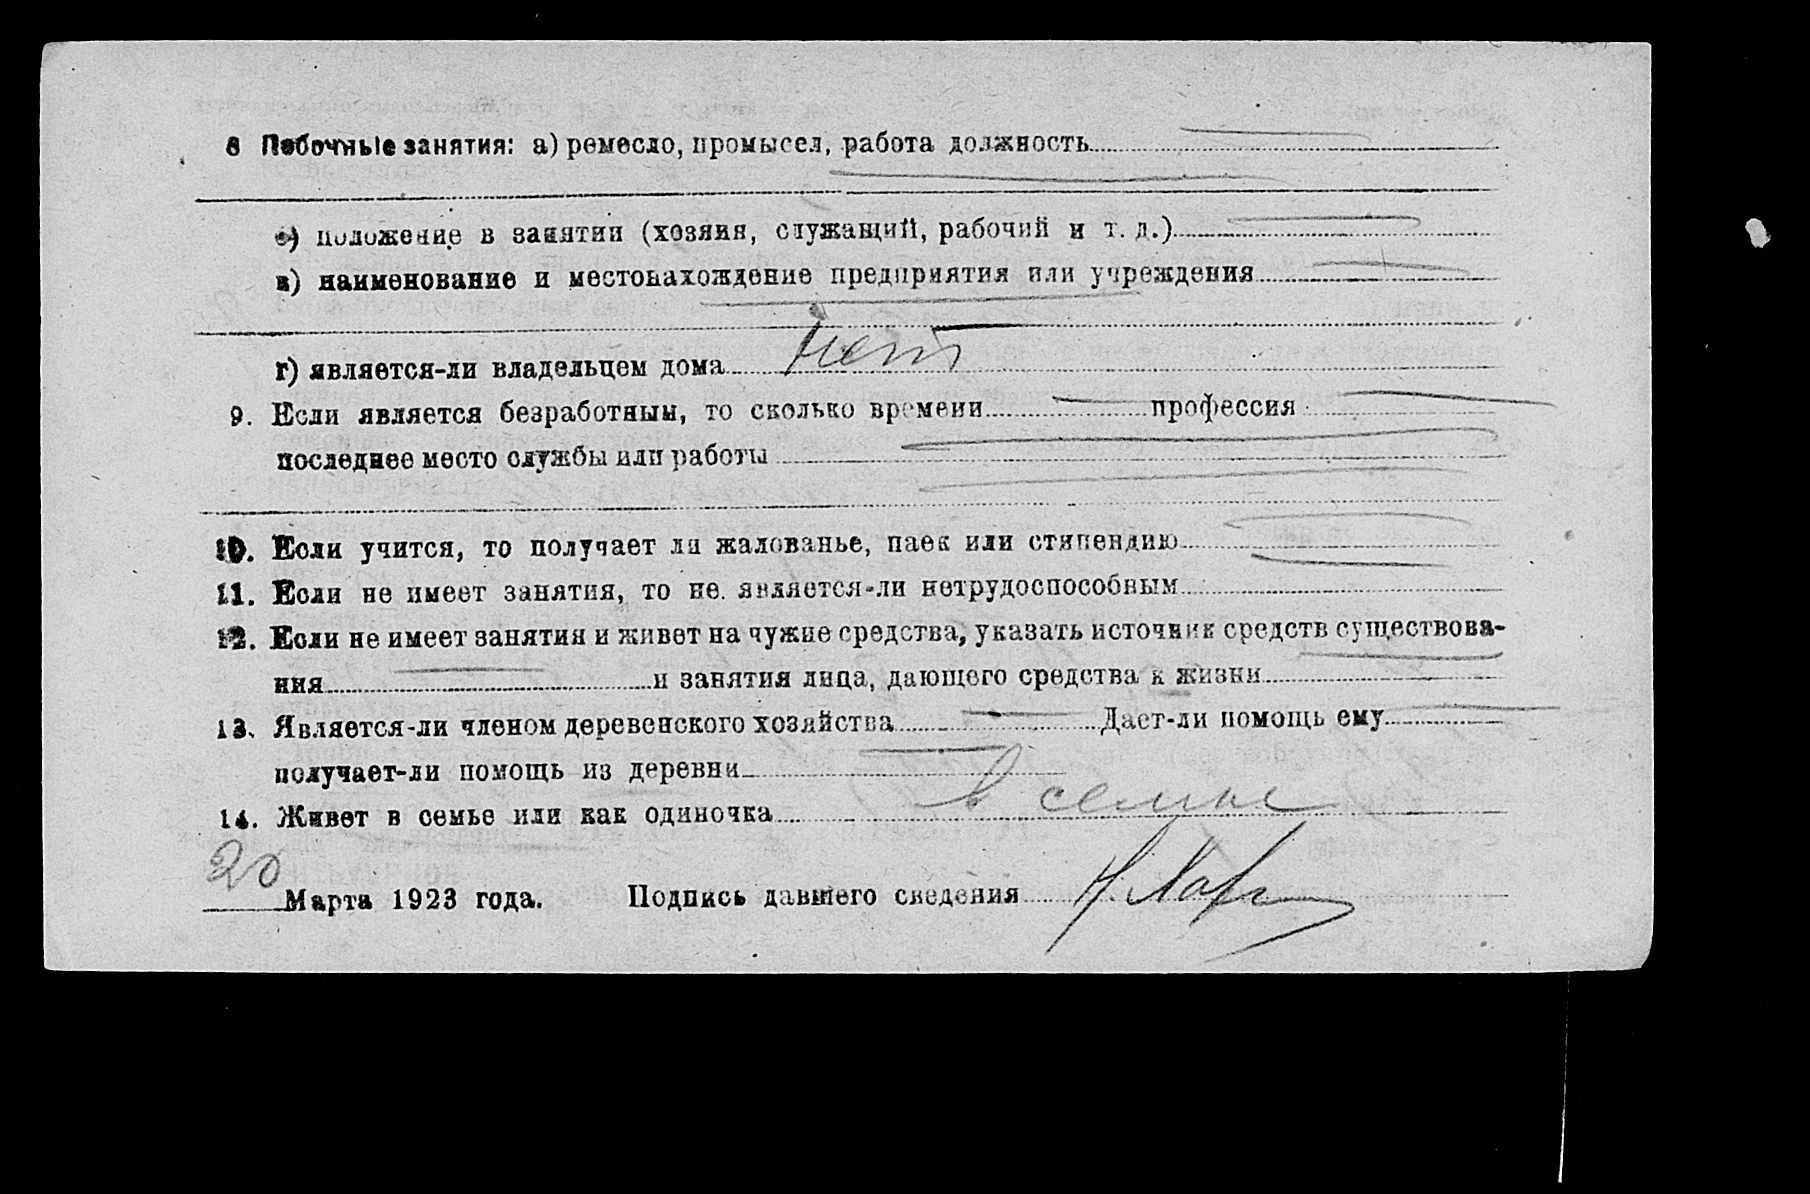 8 Побочные занятия: а) ремесло, промысел, работа должность
б) положение в занятии (хозяин, служащий, рабочий и т. д.)
в) наименование и местонахождение предприятия или учреждения
г) является-ли владельцем дома нет
9. Если является безработным, то сколько времени — профессия —
последнее место службы или работы —
10. Если учится, то получает ли жалованье, паек или стипендию —
11. Если не имеет занятия, то не. является-ли нетрудоспособным
12. Если не имеет занятия и живет на чужие средства, указать источник средств существова-
ния — и занятия лица, дающего средства к жизни
13. Является-ли членом деревенского хозяйства — Дает-ли помощь ему —
получает-ли помощь из деревни —
14. Живет в семье или как одиночка в семье
20 Марта 1923 года. Подпись давшего сведения